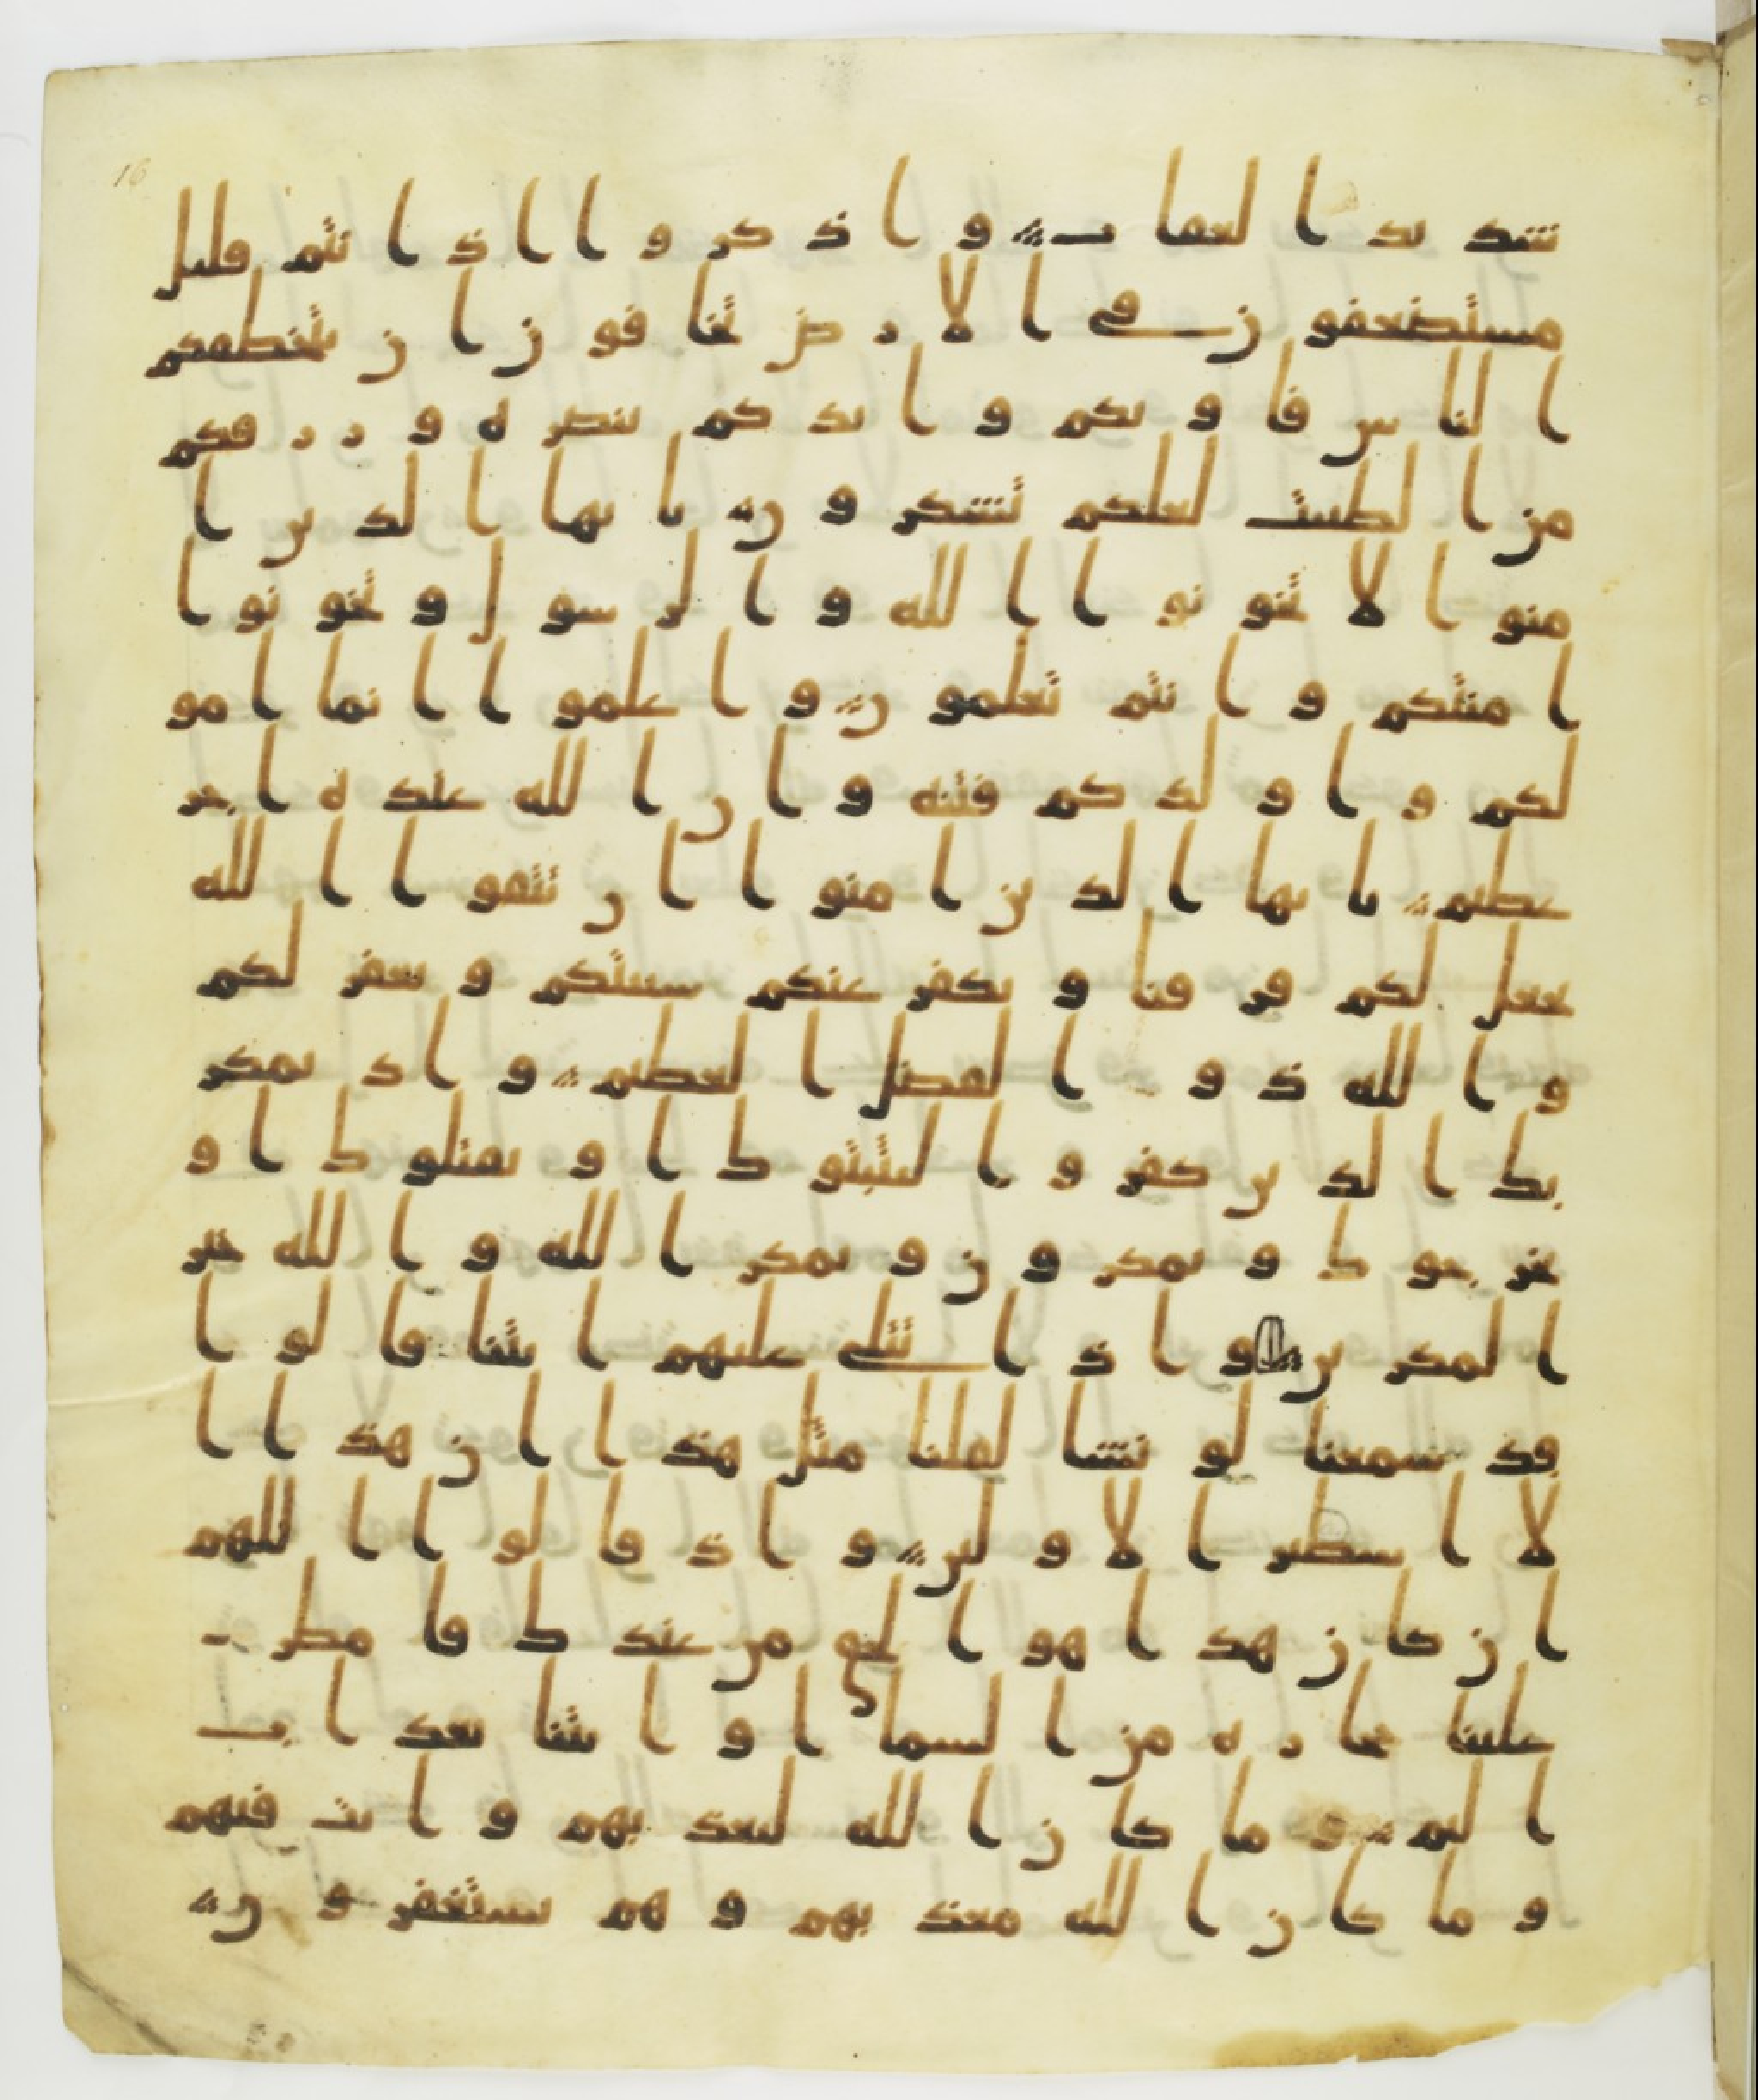 16
شديد العقاب واذكروا اذ انتم قليل
مستضعفون في الارض تخافون ان يتخطفكم
الناس فاويكم وايدكم بنصره ورزقكم
من الطيبت لعلكم تشكرون يايها الذين ا
منوا لا تخونوا الله والرسول وتخونوا
امنتكم وانتم تعلمون واعلموا انما امو
لكم واولدكم فتنه وان الله عنده اجر
عظيم يايها الذين امنوا ان تتقوا الله
يجعل لكم فرقنا ويكفر عنكم سييتكم ويغفر لكم
والله ذو الفضل العظيم واذ يمكر
بك الذين كفروا ليثبتوك او يقتلوك او
يخرجوك ويمكرون ويمكر الله والله خير
المكرين واذا تتلى عليهم ايتنا قالوا
قد سمعنا لو نشا لقلنا مثل هذا ان هذا ا
لا اسطير الاولين واذ قالوا اللهم
ان كان هذا هو الحق من عندك فامطر
علينا حجاره من السما او ايتنا بعذاب
اليم وما كان الله ليعذبهم وانت فيهم
وما كان الله معذبهم وهم يستغفرون